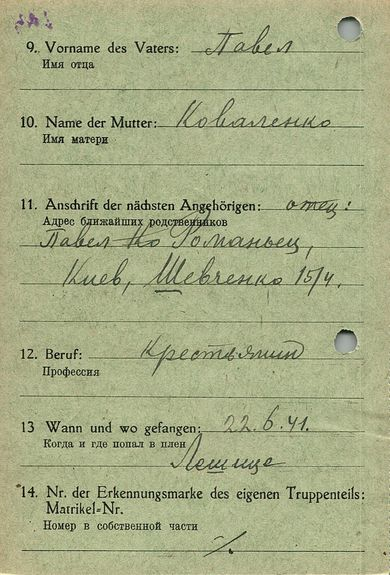 9. Vorname des Vaters: Павел
Имя отца
10. Name der Mutter: Коваленко
Имя матери
11. Anschrift der nächsten Angehörigen: отец:
Адрес ближайших родственников
Павел Ко Романьец,
Киев, Шевченко 15/4.
12. Beruf: Крестьянин
Профессия
13 Wann und wo gefangen: 22.6.41.
Когда и где попал в плен
Лешице
14. Nr. der Erkennungsmarke des eigenen Truppenteils:
Matrikel-Nr.
Номер в собственной части
·/.